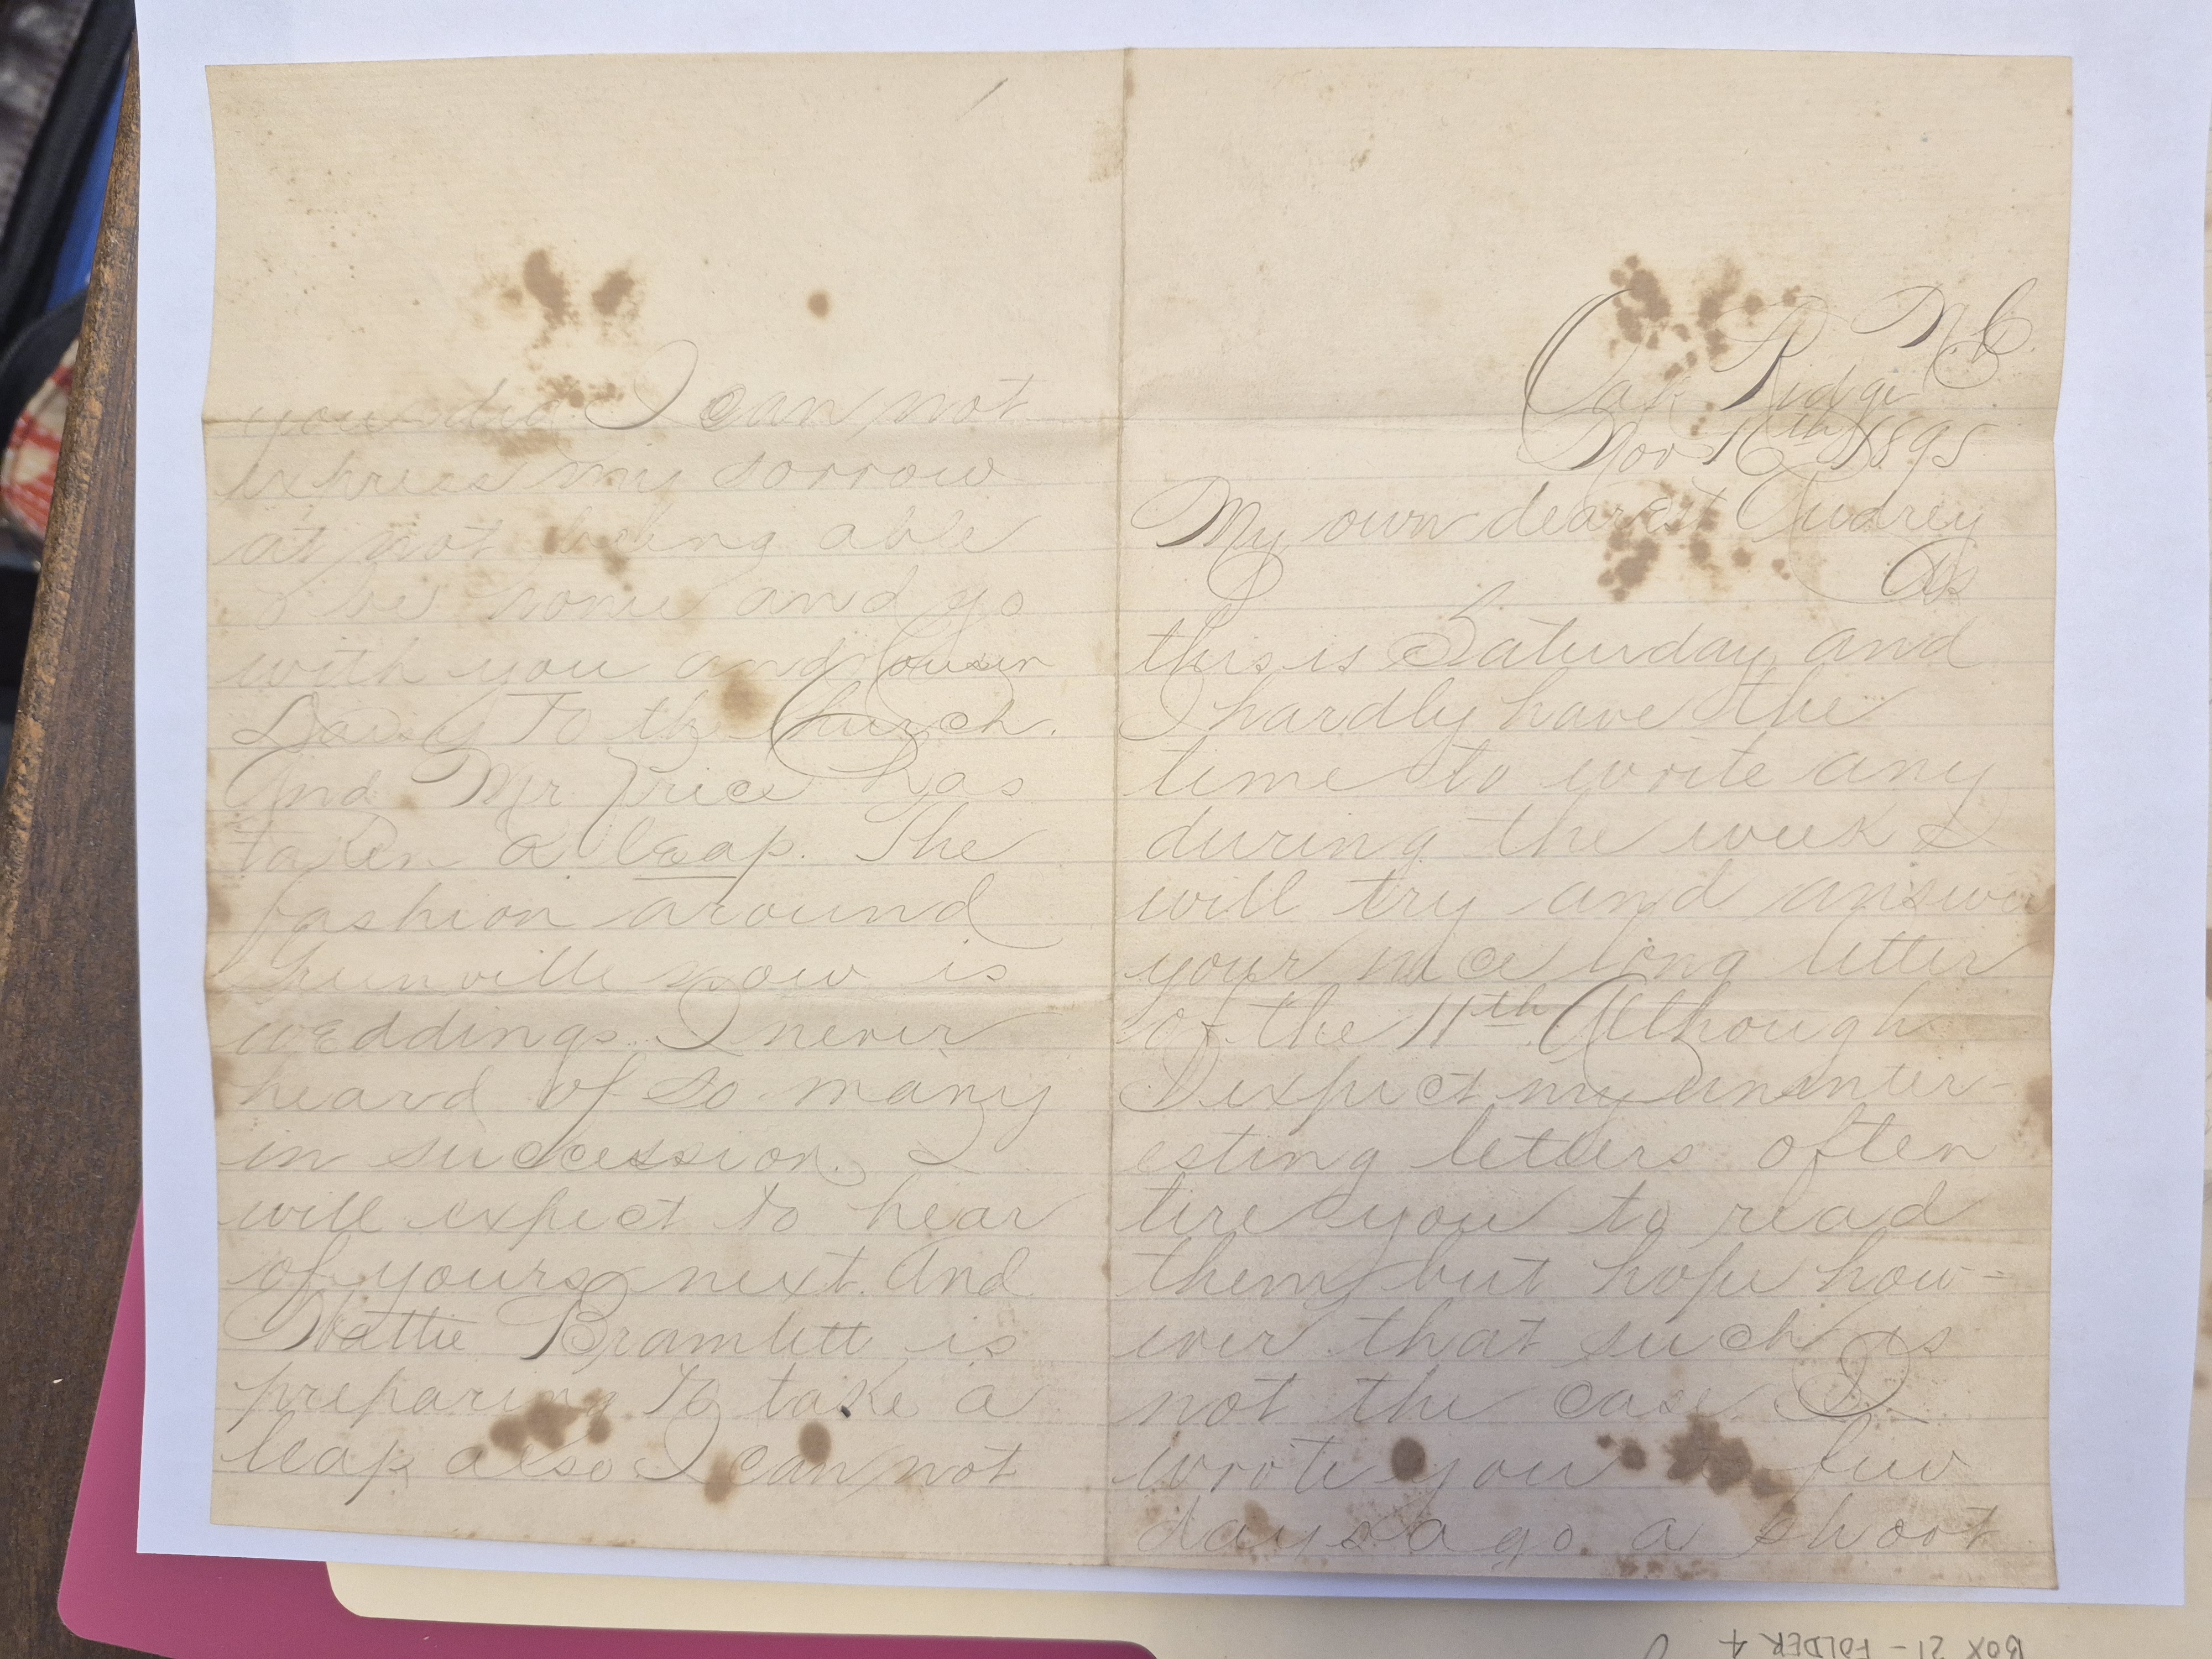 Oak Ridge N.C.
Nov 16th 1895
My own dearest Audrey
As
this is Saturday and
I hardly have the
time to write any
during the week I
will try and answer
your nice long letter
of the 11th Although
I expect my uninter-
esting letters often
tire you to read
them but hope how-
ever that such is
not the case I
wrote you a few
days ago a short
you did I can not
express my sorrow
at not being able
to be home and go
with you and Cousin
Daisy To the Church.
And Mr Price has
taken a leap. The
fashion around
Greenville now is
weddings I never
heard of so many
in succession. I
will expect to hear
of yours next. And
Hattie Bramlett is
preparing to take a
leap also I can not
BOX 21 - FOLDER 4